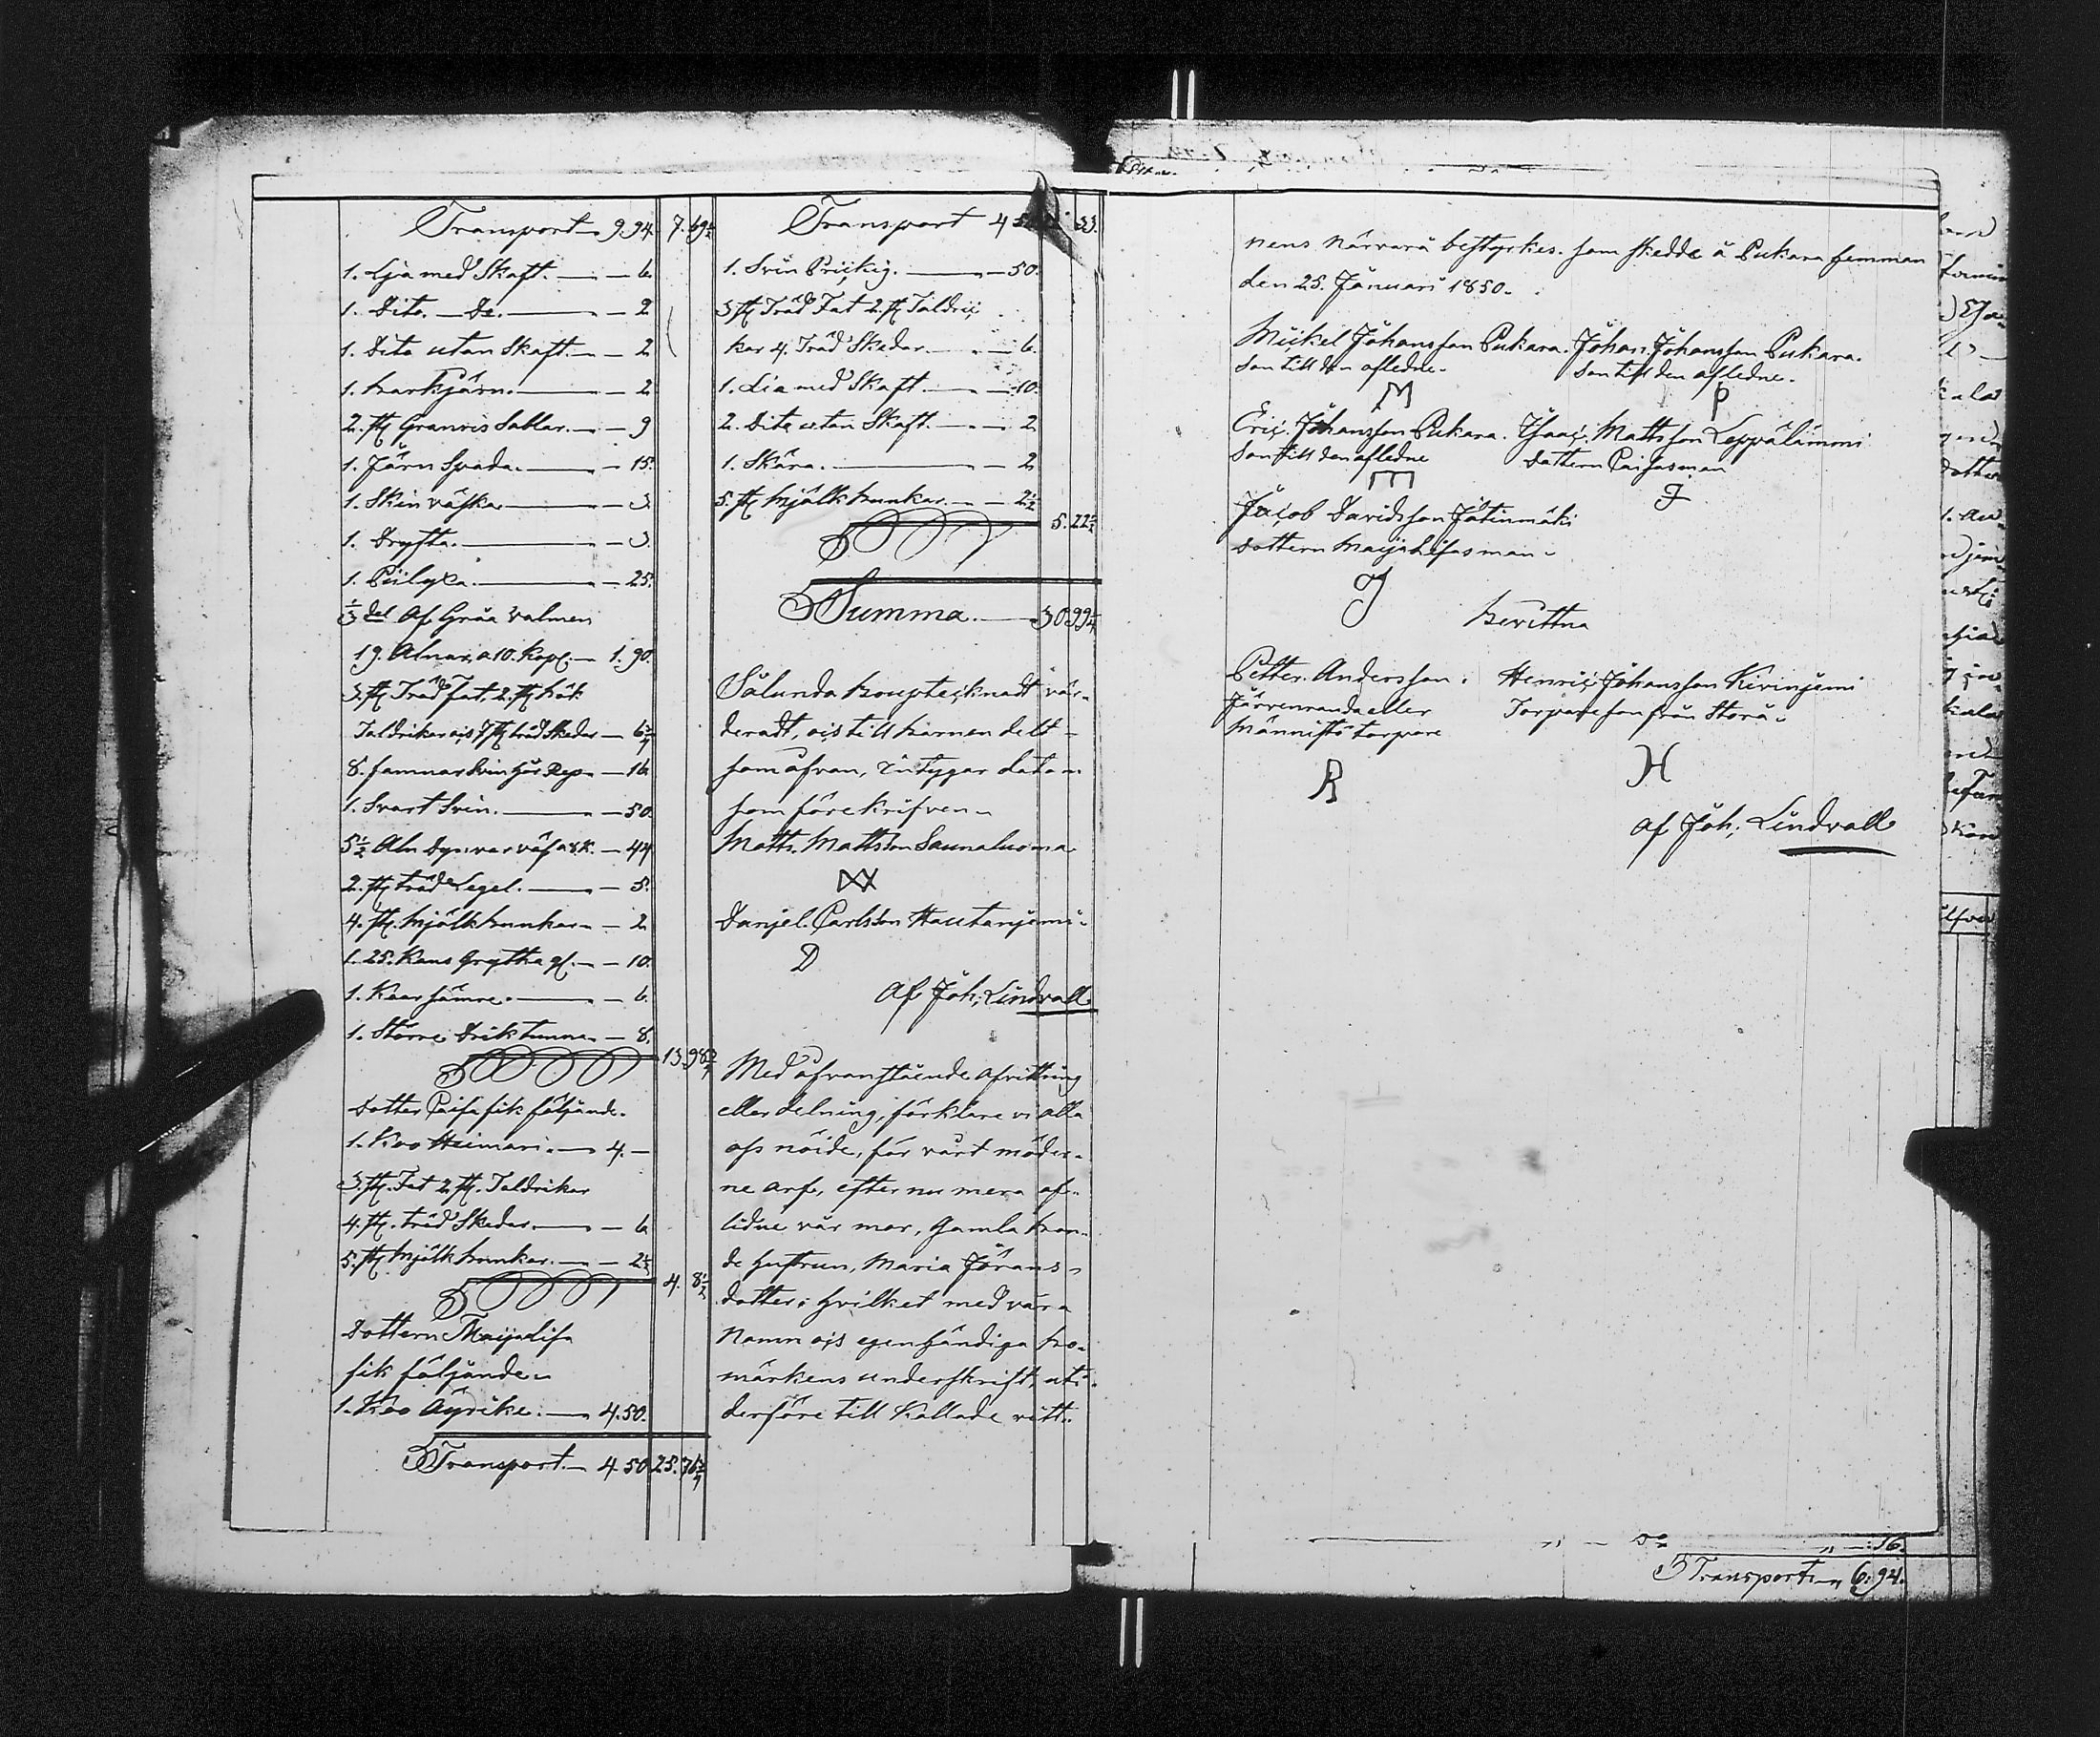 Transport 9.94. 7.69½
1. Lja med Skaft. — 6.
1. Dito. — Do. — 2
1. Dito utan Skaft. — 2
1. harkjärn. — 2
2. st Granris Sablar. — 9
1. Järn Spada. — 15.
1. Skin väska — 3.
1. Dryfta. — 3.
1. Piilyxa. — 25.
⅓ del Af Gråa valmen
19. Alnar, a 10. Kop. — 1.90.
3. st Träd fat, 2. st
Taldrikar 7 st träd Skedar — 6
8. famnar Svin hår Rep — 16
1. Svart Svin. — 50.
5½ Aln Dynvar väf a 8 k. — 44
2. st träd Legel. — 5.
4. st. Mjölk bunkar — 2
1. 25. Kans Grytha — 10.
1. — 6.
1. Större Drik tunna — 8.
13.98
Dotter Caisa fik följande.
1. Koo Heimari — 4. —
3. st. Fat 2. st. Taldrikar
4. st. träd Skedar — 6
5. st Mjölk bunkar. — 2½
4. 8½
Dottern Maijalisa
fik följande
1. Koo Äyrike. — 4.50.
Transport. — 4.50 25.76
Transport 4 50 33.
1. Svin Prickig. — 50.
3 st Träd Fat 2. st Taldric
kar 4. Träd Skedar — 6.
1. Lia med Skaft. — 10.
2. Dito utan Skaft. — 2
1. Skära. — 2
5. st Mjölk bunkar — 2½
5.22½
Summa. — 30 99¼
Sålunda upptecknadt vär-
deradt, och till barnen delt
som ofvan, intygar datum
som föreskrifven
Matts. Mattsson Saunaluoma
Danjel. Carlsson Hautanjemi
D
Af Joh; Lindvall
Med ofvanstående afvittring
eller delning, förklare vi alla
oss nöide, för vårt möder-
ne arf, efter nu mera af-
lidne vår mor, Gamla bon-
de hustrun, Maria Jörans-
dotter; hvilket med våra
Namn och egenhändiga bo-
märkens underskrift, uti
derföre till Kallade vitt-
nens närvara bestyrkes. som skedde å Pukara hemman
den 25. Januari 1850.
Mickel Johansson Pukara. Johan. Johansson Pukara.
Son till den afledne. Son till den afledne.
M P
Eric. Johansson Pukara. Isaac. Mattsson Leppälämmi
Son till den afledne Dottern Caisas man
M J
Jacob Davidsson Jätinmäki
Dottern Maija Lisas man
J Bevittna
Petter. Andersson. Henric Johansson Kivinjemi
Järvenranda eller Torpare son från Storå
Männistö torpare
R H
Af Joh; Lindvall
Do — 16.
Transport 6.94.